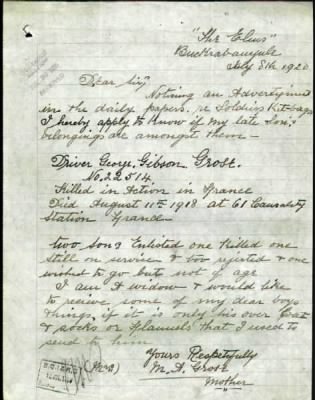 "The Elms"
Buckrabanyule
July 8th 1920
Dear Sir,
Noticing an Advertisment
in the daily papers, re Soldiers Kit-bags
I hereby apply to know if my late Son's
belongings are amongst them —
Driver George Gibson Grose.
No. 22514
Killed in Action in France
Died August 11th 1918 at 61 Causality
Station France
two Sons Enlisted one Killed one
still on service & two rejected & one
wished to go but not of age
I am A widow & would like
to recieve some of my dear boys
things, if it is only his over Coat
& socks or flannels that I used to
send to him
Yours Respetfully
(Mrs) M. A. Grose
Mother